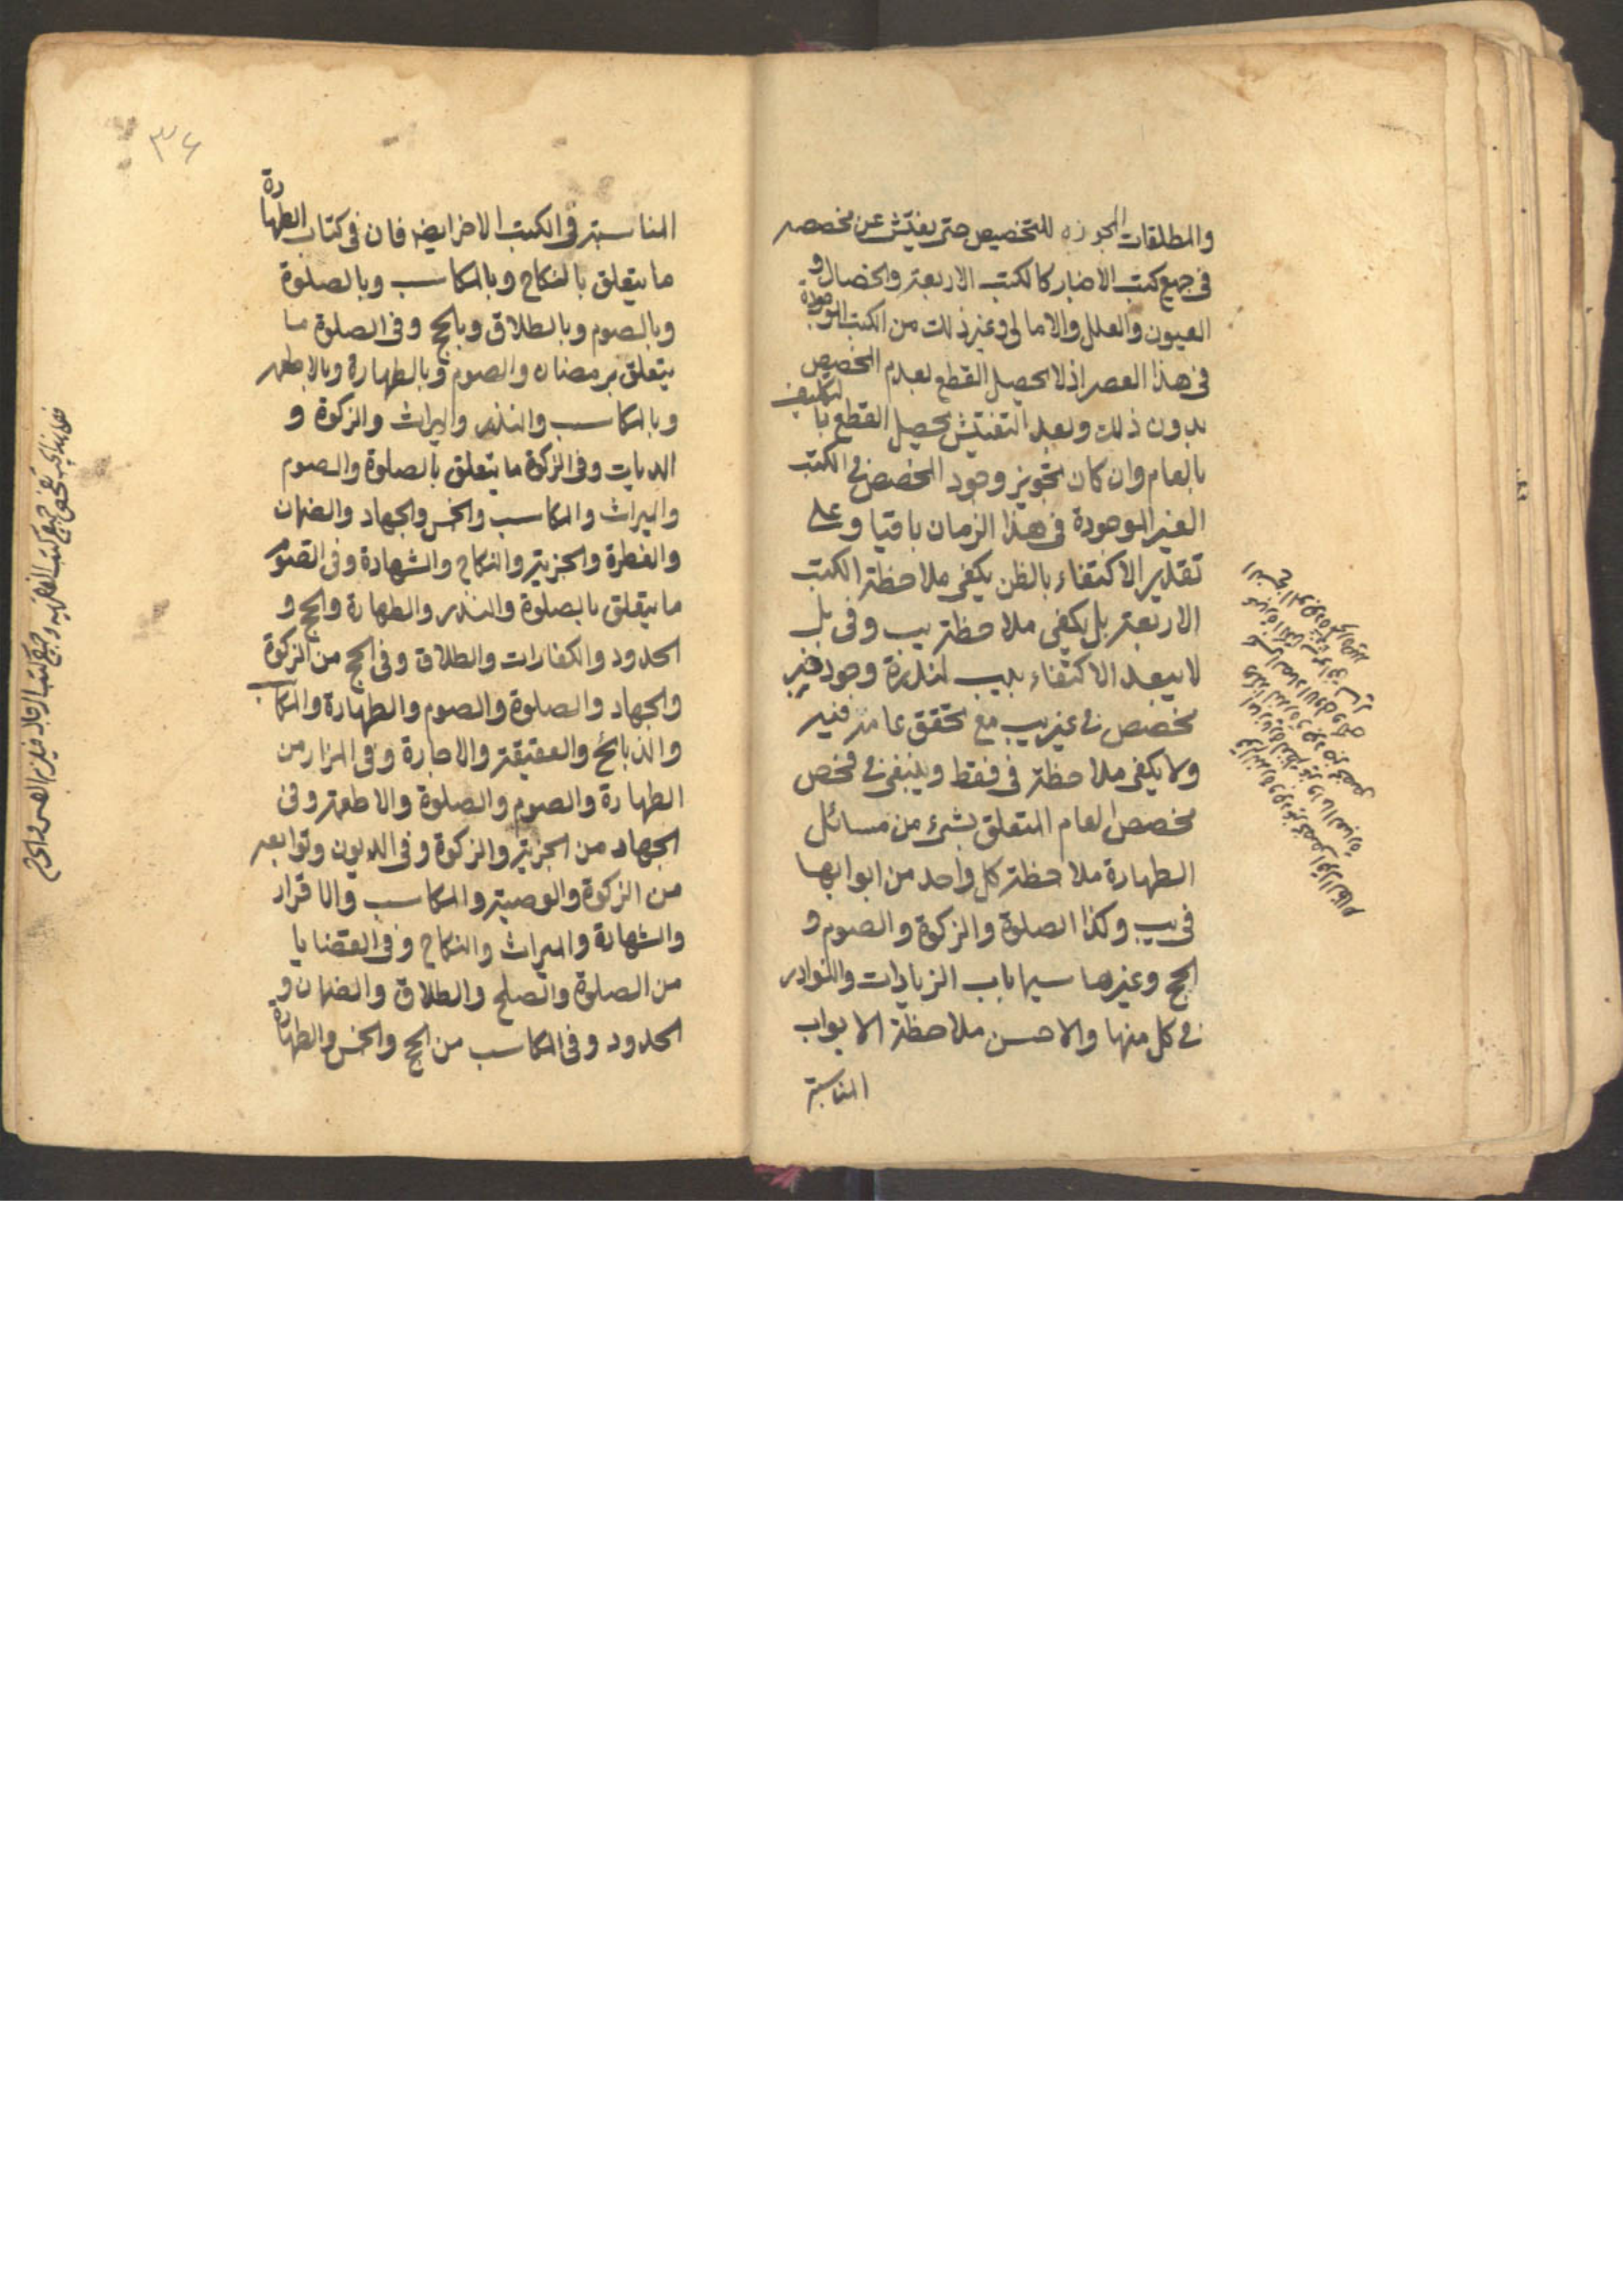 والمطلقات المجوزة للتخصيص حتى يفتش عن مخصصه
فى جميع كتب الاخبار كالكتب الاربعة والخصال و
العيون والعلل والامالى وغير ذلك من الكتب الموجودة
فى هذا العصر اذ لا يحصل القطع بعدم المخصص
بدون ذلك وبعد التفتيش يحصل القطع بالتكليف
بالعام وان كان تجويز وجود المخصص فى الكتب
الغير الموجودة فى هذا الزمان باقيا وعلى
تقدير الاكتفاء بالظن يكفى ملاحظة الكتب
الاربعة بل يكفى ملاحظة يب وفى بل
لا يبعد الاكتفاء بيب لندرة وجود خبر
مخصص فى غير يب مع تحقق عامه فيه
ولا يكفى ملاحظة فى فقط وينبغى فى فحص
مخصص العام المتعلق بشىء من مسائل
الطهارة ملاحظة كل واحد من ابوابها
فى يب وكذا الصلوة والزكوة والصوم و
الحج وغيرها سيما باب الزيادات والنوادر
فى كل منها والاحسن ملاحظة الابواب
المناسبة
٣٤
المناسبة فى الكتب الاخر ايضا فان فى كتاب الطهارة
ما يتعلق بالنكاح وبالمكاسب وبالصلوة
وبالصوم وبالطلاق وبالحج وفى الصلوة ما
يتعلق برمضان والصوم وبالطهارة وبالاطعمه
وبالمكاسب والنذر والميراث والزكوة و
الديات وفى الزكوة ما يتعلق بالصلوة والصوم
والميراث والمكاسب والخمس والجهاد والضمان
والفطرة والجزية والنكاح والشهادة وفى الصوم
ما يتعلق بالصلوة والنذر والطهارة والحج و
الحدود والكفارات والطلاق وفى الحج من الزكوة
والجهاد والصلوة والصوم والطهارة والمكاسب
والذبائح والعقيقة والاجارة وفى المزار من
الطهارة والصوم والصلوة والاطعمة وفى
الجهاد من الجزية والزكوة وفى الديون وتوابعه
من الزكوة والوصية والمكاسب والاقرار
والشهادة والميراث والنكاح وفى القضايا
من الصلوة والصلح والطلاق والضمان و
الحدود وفى المكاسب من الحج والخمس والطهارة